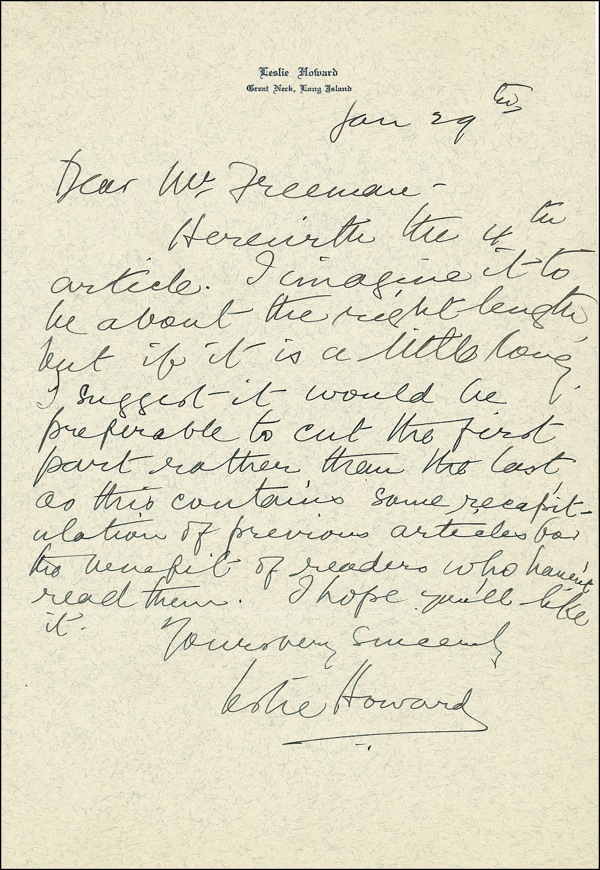 Leslie Howard
Great Neck, Long Island
Jan 29th
Dear Mr Freeman -
Herewith the 4th
article. I imagine it to
be about the right length,
but if it is a little long,
I suggest it would be
preferable to cut the first
part rather than the last,
as this contains some recapit-
ulation of previous articles for
the benefit of readers who haven't
read them. I hope you'll like
it.
Yours very sincerely
Leslie Howard